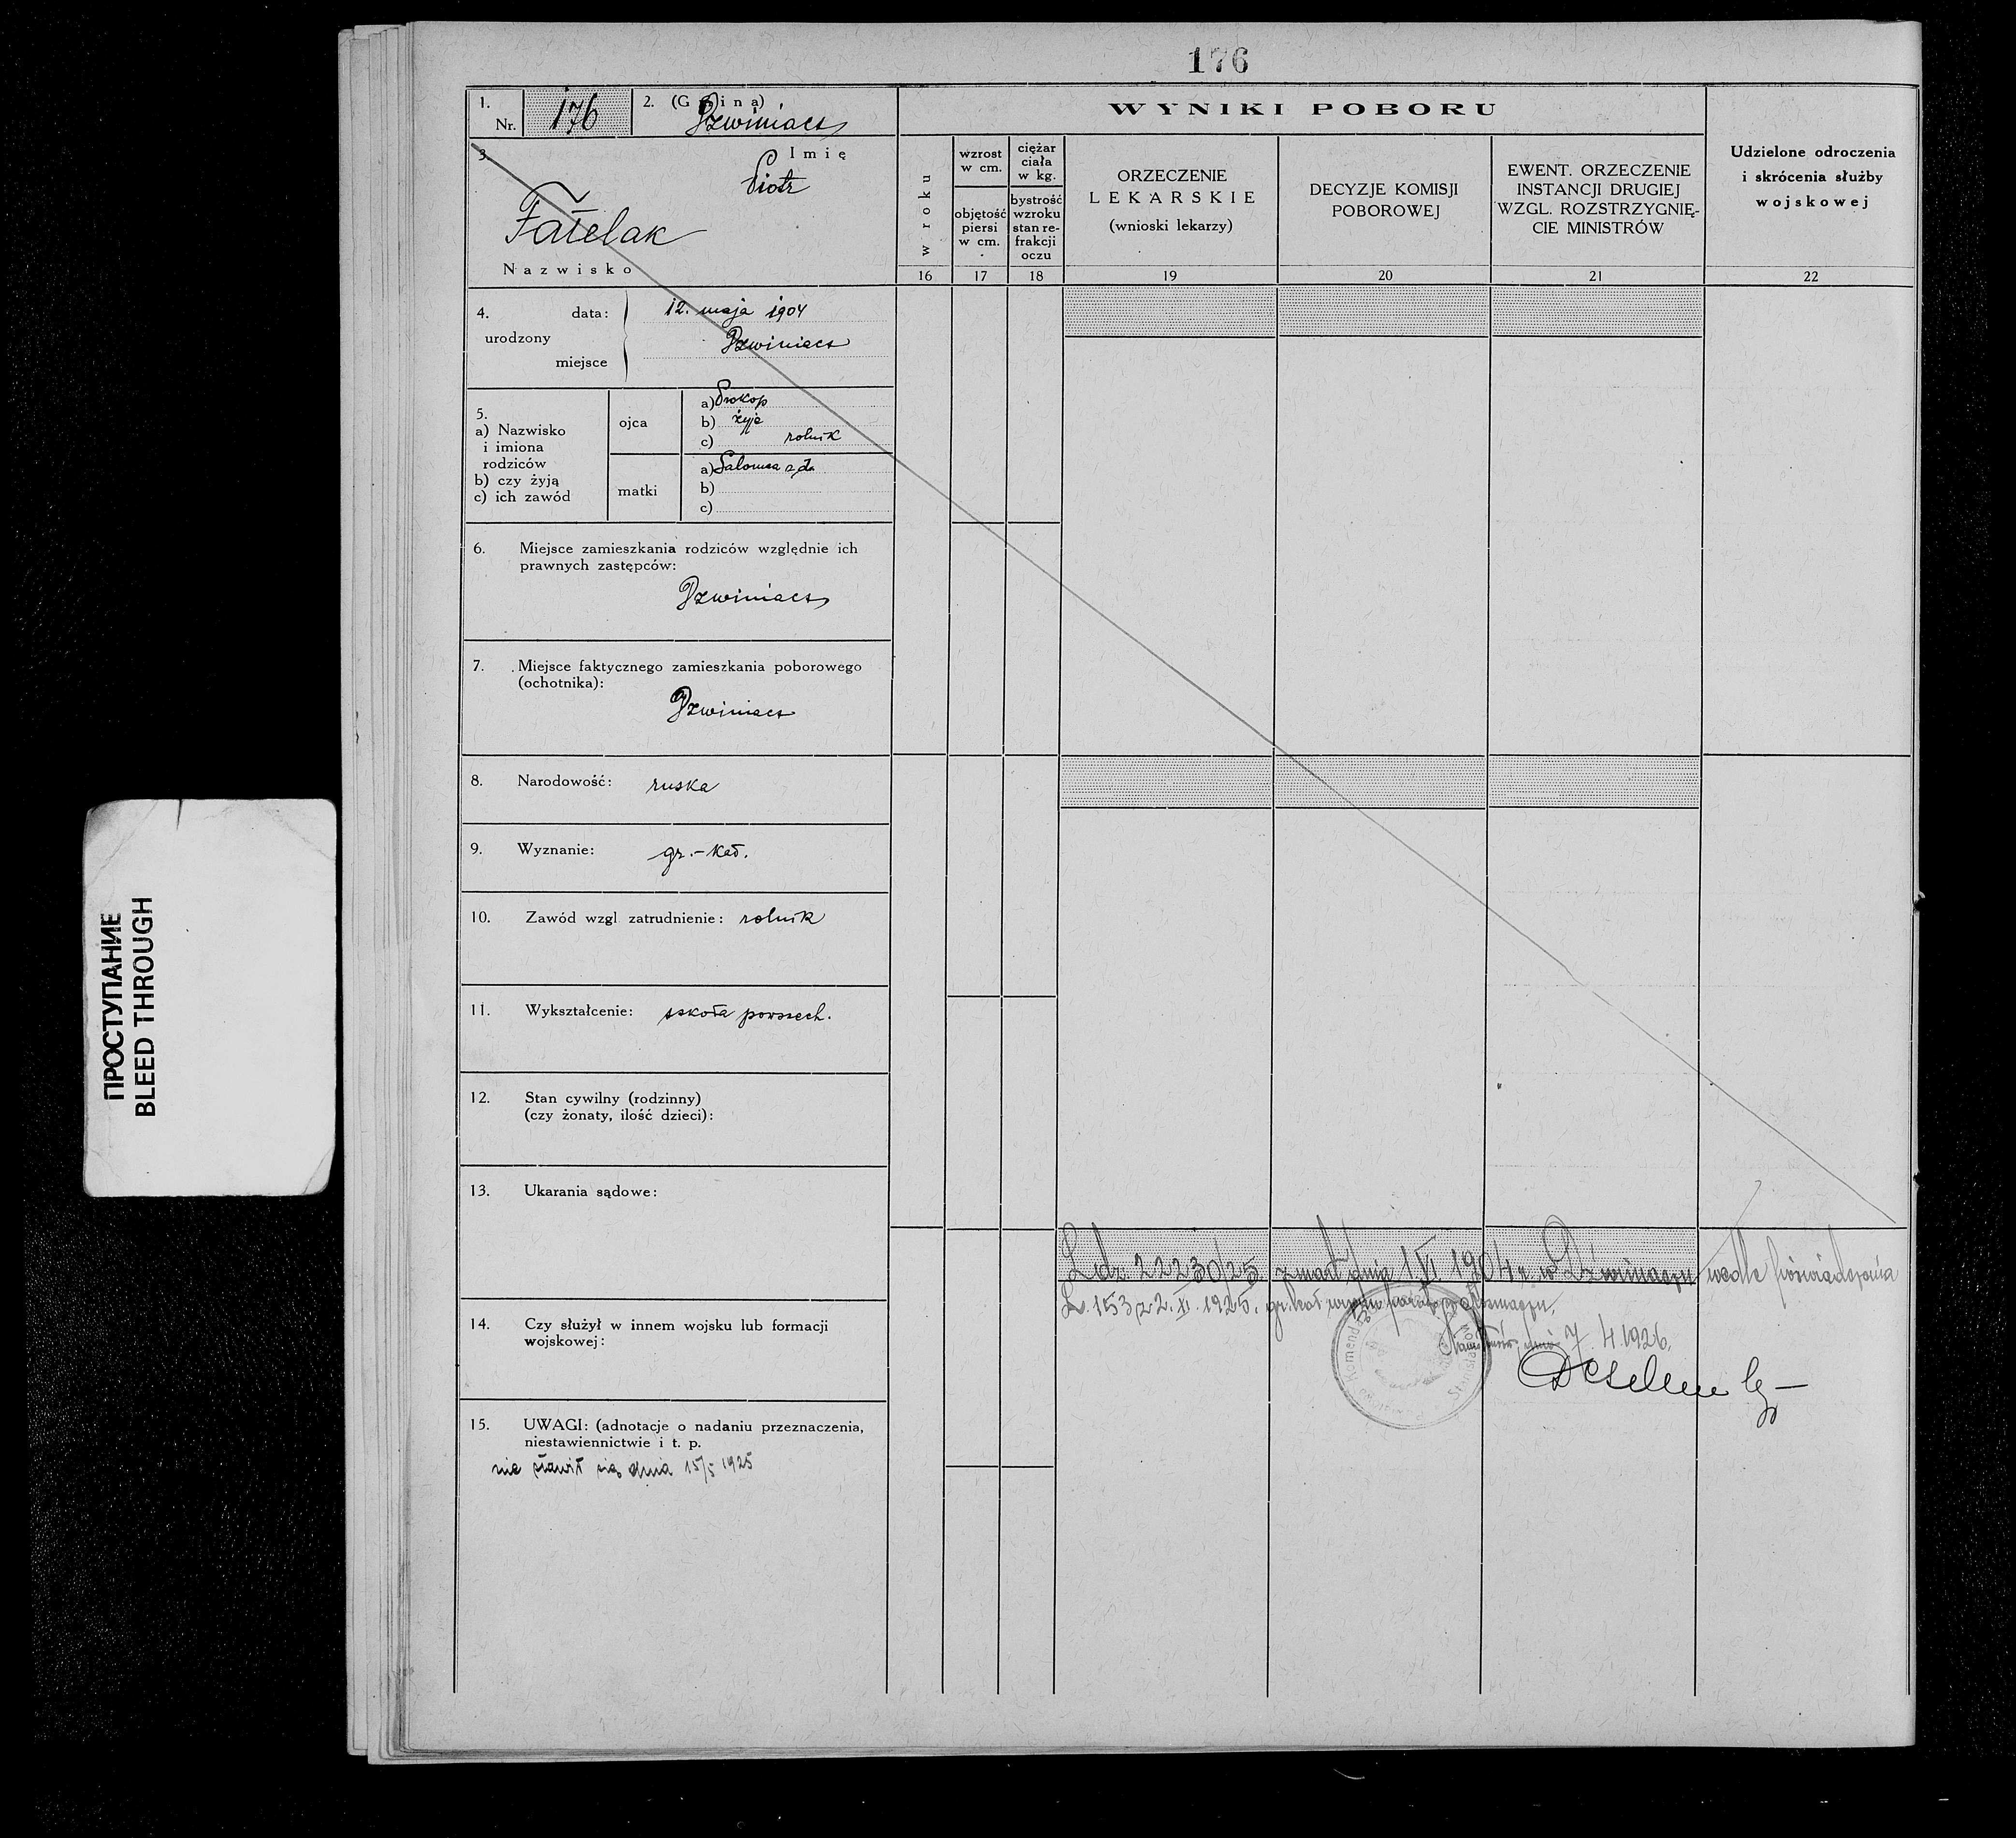 176
1. Nr. 176
2. (Gmina)
Dzwiniacz
WYNIKI POBORU
3. Imię
Piotr
Nazwisko
w roku
wzrost w cm.
objętość piersi w cm.
ciężar ciała w kg.
bystrość wzroku stan refrakcji oczu
ORZECZENIE
LEKARSKIE
(wnioski lekarzy)
DECYZJE KOMISJI
POBOROWEJ
EWENT. ORZECZENIE
INSTANCJI DRUGIEJ
WZGL. ROZSTRZYGNIĘ-
CIE MINISTRÓW
Udzielone odroczenia
i skrócenia służby
wojskowej
16 17 18 19 20 21 22
4. urodzony
data: 12. maja 1904
miejsce Dzwiniacz
5.
a) Nazwisko
i imiona
rodziców
b) czy żyją
c) ich zawód
ojca
a) Prokop
b) żyje
c) rolnik
matki
a) Salomea
b)
c)
6. Miejsce zamieszkania rodziców względnie ich
prawnych zastępców:
Dzwiniacz
7. Miejsce faktycznego zamieszkania poborowego
(ochotnika):
Dzwiniacz
8. Narodowość: ruska
9. Wyznanie: gr.-kat.
10. Zawód wzgl zatrudnienie: rolnik
11. Wykształcenie: szkoła powszech.
12. Stan cywilny (rodzinny)
(czy żonaty, ilość dzieci):
13. Ukarania sądowe:
L.dz. 22230/25 zmarł dnia 1 VI 1904 r. w Dzwiniaczu wedle poświadczenia
L. 153 z 2. XI. 1925. gr. kat. urzędu paraf.
dnia 7. 4. 1926.
14. Czy służył w innem wojsku lub formacji
wojskowej:
15. UWAGI: (adnotacje o nadaniu przeznaczenia,
niestawiennictwie i t. p.
nie stawił się dnia 15/5 1925
ПРОСТУПАНИЕ
BLEED THROUGH